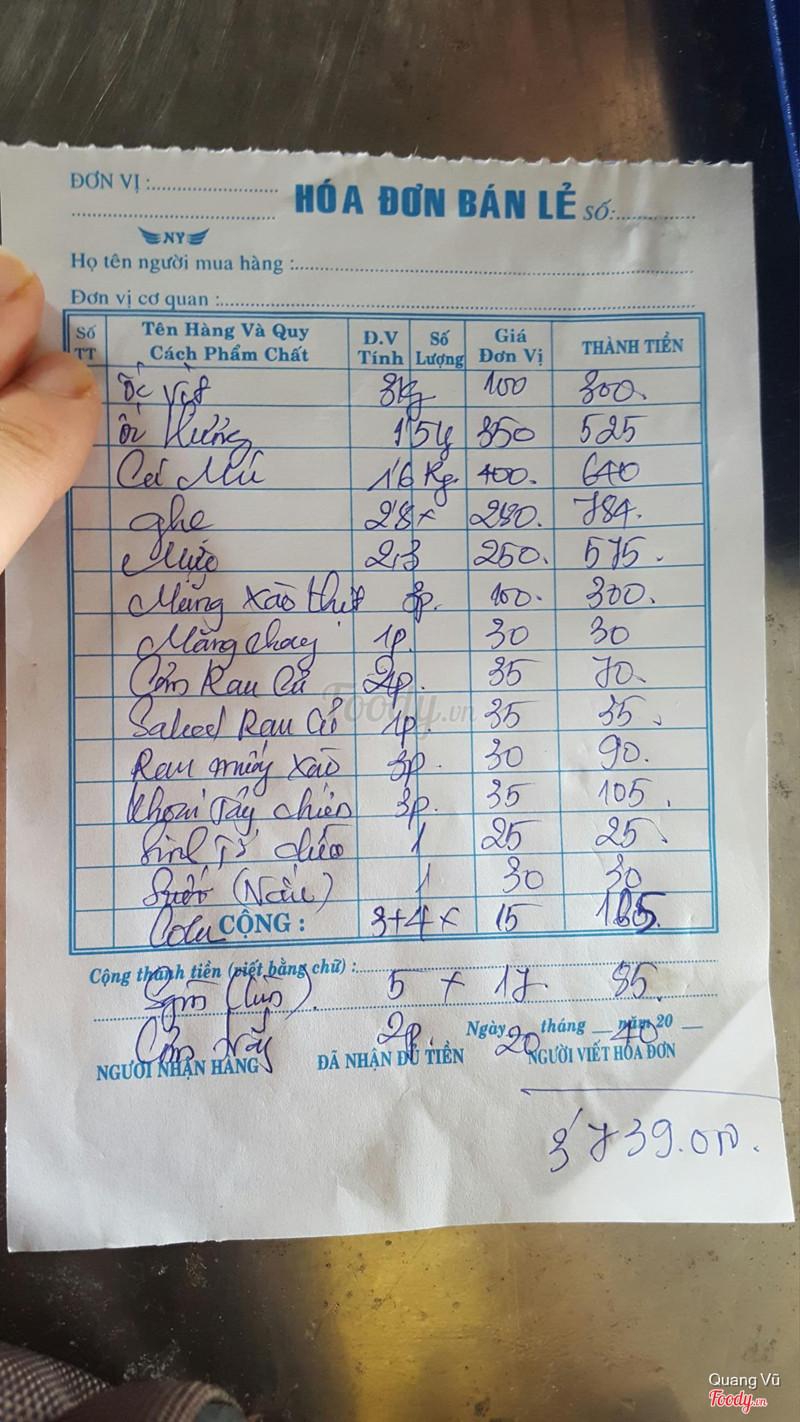 ĐƠN VỊ :
HÓA ĐƠN BÁN LẺ SỐ:
NY
Họ tên người mua hàng :
Đơn vị cơ quan :
Số TT Tên Hàng Và Quy Cách Phẩm Chất Đ.V Tính Số Lượng Giá Đơn Vị THÀNH TIỀN
Ốc 3kg 100 300.
ốc Hương 1'5 350 525
Cá Mú 1'6 Kg. 400. 640
ghẹ 2'8 x 280. 784.
Mực 2,3 250. 575.
Măng xào thịt 3p. 100. 300.
Măng chay 1p. 30 30
Cơm Rau Củ 2p. 35 70.
Salad Rau Củ 1p. 35 35.
Rau muống xào 3p. 30 90.
Khoai Tây chiên 3p. 35 105.
Sinh Tố 1 25 25
(Nấu) 1 30 30
Cola CỘNG : 3+4 x 15
Cộng thành tiền (viết bằng chữ) :
5 x 17. 85.
Ngày tháng năm 20
Cơm 2p. 20 40
NGƯỜI NHẬN HÀNG ĐÃ NHẬN ĐỦ TIỀN NGƯỜI VIẾT HÓA ĐƠN
3'739.000.
Foody.vn
Quang Vũ
Foody.vn